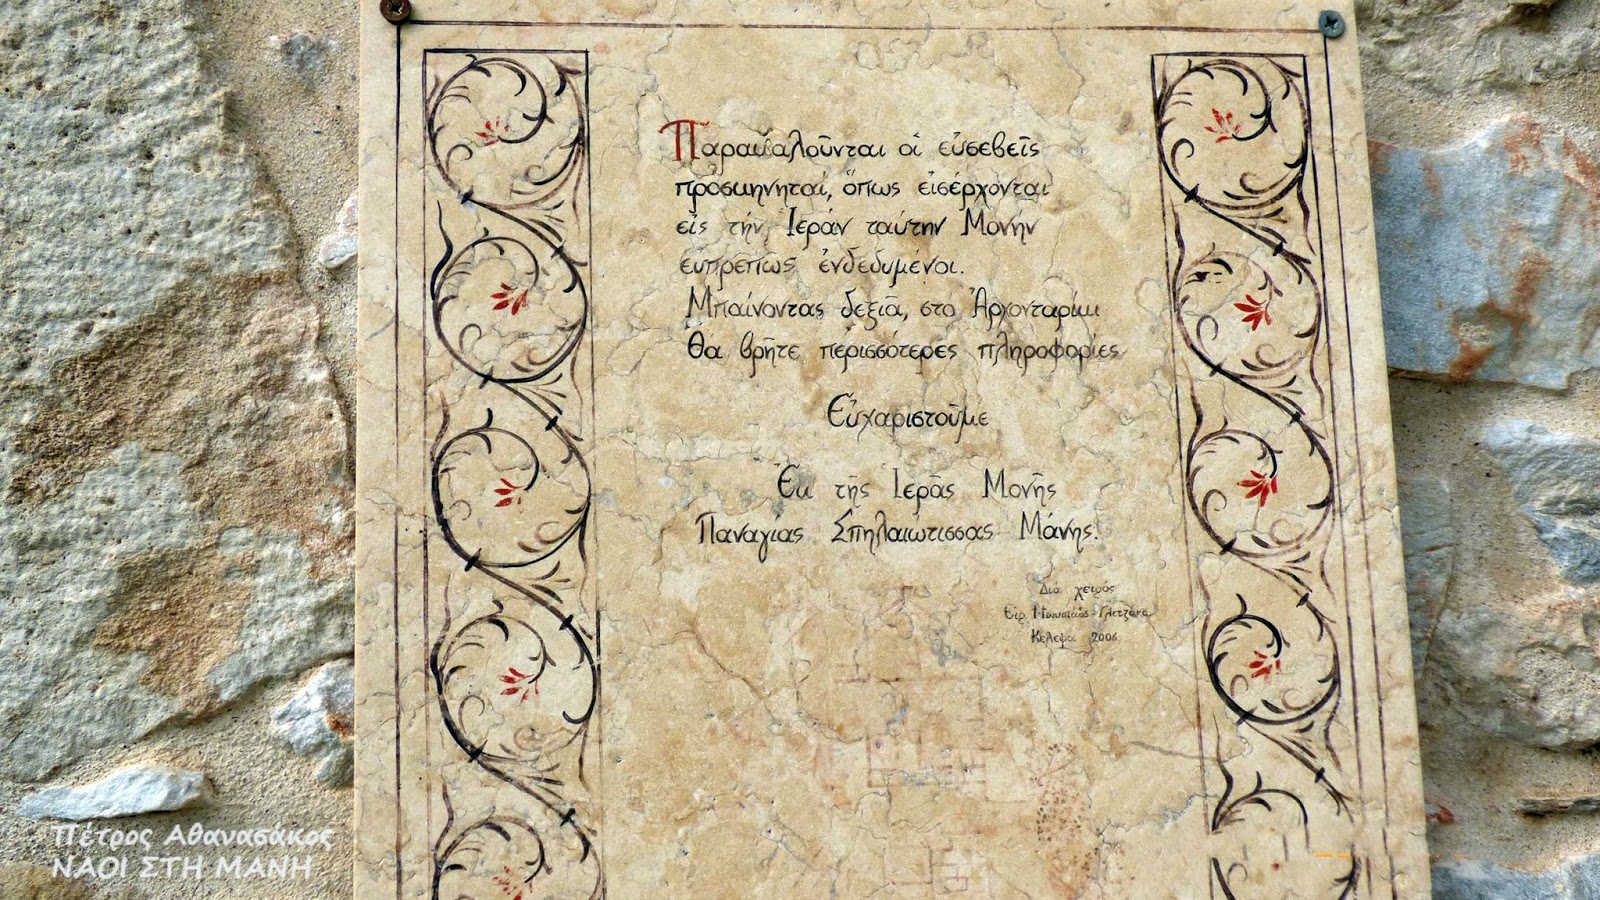 Παρακαλοῦνται οἱ εὐσεβεῖς
προσκηνηταί, ὅπως εἰσέρχονται
εἰς τήν Ἱεράν ταύτην Μονήν
εὐπρεπῶς ἐνδεδυμένοι.
Μπαίνοντας δεξιᾶ, στο Ἀρχονταρίκι
θα βρῆτε περισσότερες πληροφορίες
Εὐχαριστοῦμε
Ἐκ τῆς Ἱερᾶς Μονῆς
Παναγίας Σπηλαιώτισσας Μάνης.
Δια χειρός
Εἰρ.
Κελεφα 2006
Πέτρος Αθανασάκος
ΝΑΟΙ ΣΤΗ ΜΑΝΗ